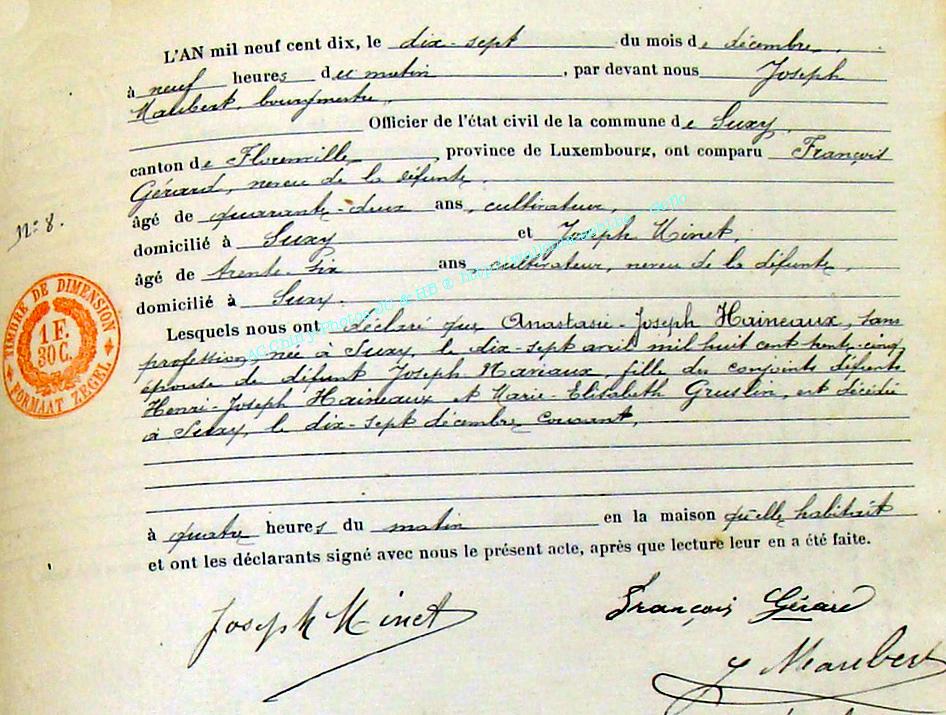 L'AN mil neuf cent dix, le dix-sept du mois de décembre,
à neuf heures du matin, par devant nous Joseph
Maubert, bourgmestre,
Officier de l'état civil de la commune de Suxy,
canton de Florenville, province de Luxembourg, ont comparu François
Gérard, neveu de la défunte,
âgé de quarante-deux ans, cultivateur,
domicilié à Suxy et Joseph Minet,
âgé de trente-six ans, cultivateur, neveu de la défunte,
domicilié à Suxy.
Lesquels nous ont déclaré que Anastasie-Joseph Haineaux, sans
profession, née à Suxy, le dix-sept avril mil huit cent trente-cinq
épouse de défunt Joseph Mariaux, fille des conjoints défunts
Henri-Joseph Haineaux et Marie-Elisabeth Gruslin, est décédée
à Suxy, le dix-sept décembre courant,
à quatre heures du matin en la maison qu'elle habitait
et ont les déclarants signé avec nous le présent acte, après que lecture leur en a été faite.
N° 8.
TIMBRE DE DIMENSION
1 F.
30 C.
FORMAAT ZEGEL
Joseph Minet
François Gérard
J Maubert